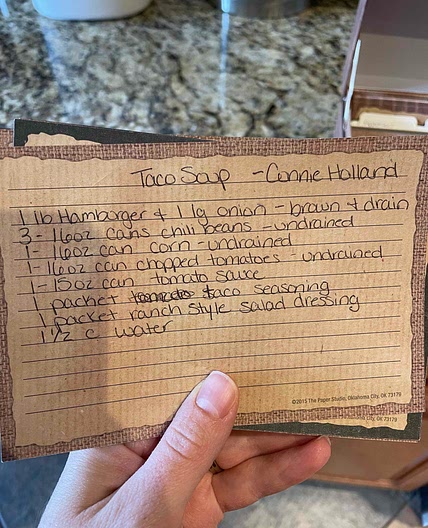 Taco Soup - Connie Holland
1 lb Hamburger + 1 lg onion - brown + drain
3 - 16oz cans chili beans - undrained
1 - 16oz can corn - undrained
1 - 16oz can chopped tomatoes - undrained
1 - 15oz can tomato sauce
1 packet taco seasoning
1 packet ranch style salad dressing
1 1/2 c water
©2015 The Paper Studio, Oklahoma City, OK 73179
OK 73179